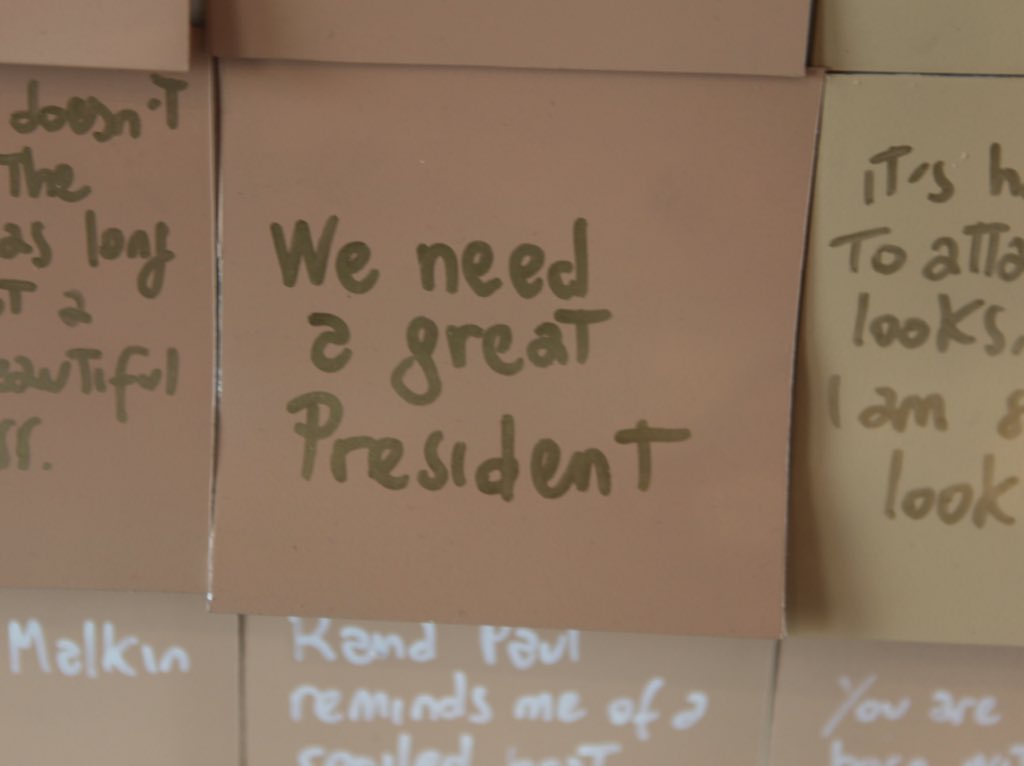 doesn't
The
as long
a
beautiful
We need
a great
President
iT's
To
looks,
I am
look
Malkin
Rand Paul
reminds me of a
You are